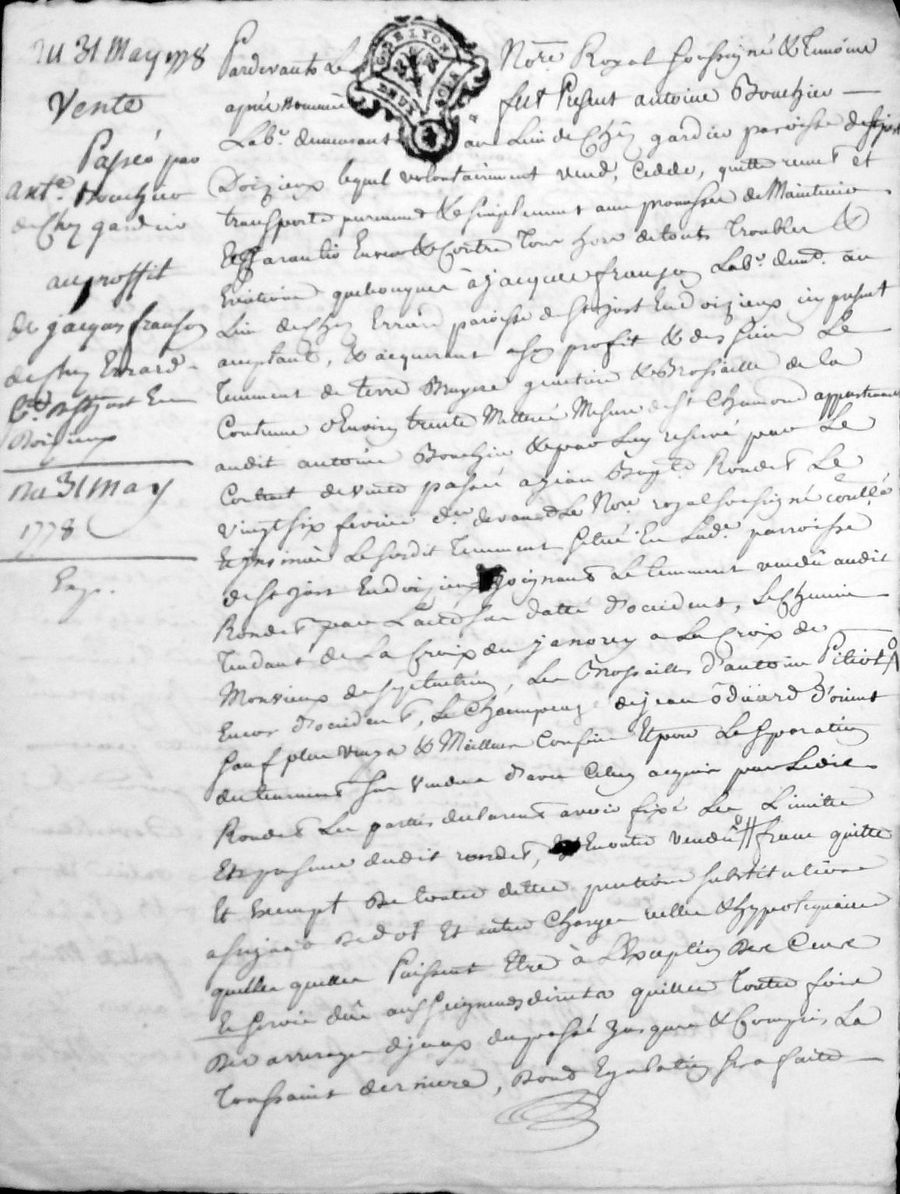 Du 31 May 1778
Vente
Passée par
ant.e Bouchier
de Chez gardier
au proffit
de jacques franson
de chez Errard
St just En
Doizieux
Du 31 May
1778
G DE LYON
DEUX SOLS
Pardevant Le Notre Royal soussigné & Temoins
apres Nommés fut Present antoine Bouchier
Lab.r demeurant au Lieu de Chez gardier paroisse de St just
Doizieux lequel volontairement vend, cedde, quitte remet et
transporte purement & simplement avec promesse de Maintenir
Et garantir Envers & Contre Tous hors de touts Troubles &
Evictions quelconques à jacques franson Lab.r dem.t au
Lieu de chez Errard paroisse de St just En doizieux icy present
acceptant, & acquerant à son profit & des siens Le
Tenement de terre Bruyere & Brossaille de la
Contenue d'Environ trente Metterées Mesure de St Chamond appartenant
audit antoine Bouchier & par Luy reservé par Le
Contrat de vente passée a jean Bap.te Rondet Le
vingt six fevrier d.er devant Le No.re royal soussigné
Le susdit Tenement situé En Lad.e parroisse
de St just En doizieux joignant Le tenement vendu audit
Rondet par L'acte sus datté d'occident, Le Chemin
Tendant de La Croix du janorey a La Croix de
Monvieux de Les Brossailles d'antoine Pitiot
Encor d'occident, Le Champ de jean odouard d'orient
sauf plus vrays & Meilleurs Confins Et pour La separation
du tenement sus vendu d'avec Celuy acquis par Ledit
Rondet Les parties declarent avoir fixé Les Limitte
En presence dudit rondet, En outre vendu franc quitte
Et Exempt De toutes dettes pentions substitutions
De dot Et autres Charges reelles & hypotequaires
quelles quelles Puissent Etre à L'Exception Des Cens
Et servis dûs aux seigneurs directs quittes Toutes fois
Des arrerages d'jceux du passé jusques & Compris La
Toussaint derniere, Dont Egalation sera faite